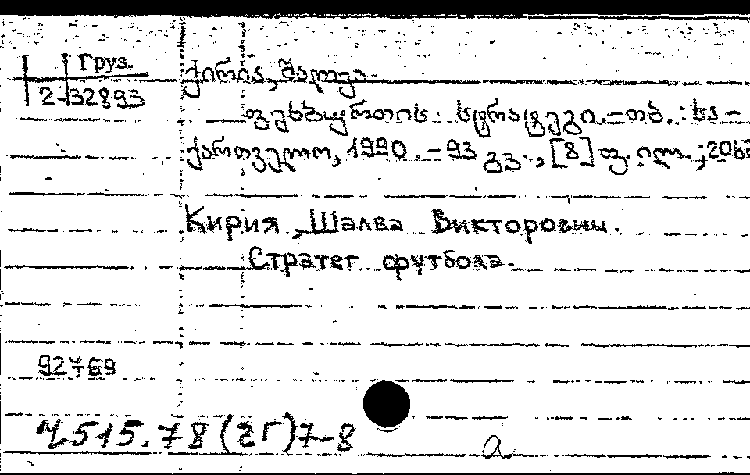 Груз.
2-32893
ქირია, შალვა.
ფეხბურთის სტრატეგი. – თბ. : სა-
ქართველო, 1990. – 93 გვ., [8] ფ. ილ. ; 20სმ
Кирия, Шалва Викторович.
Стратег футбола.
92769
Ч515.78(2Г)7-8
а